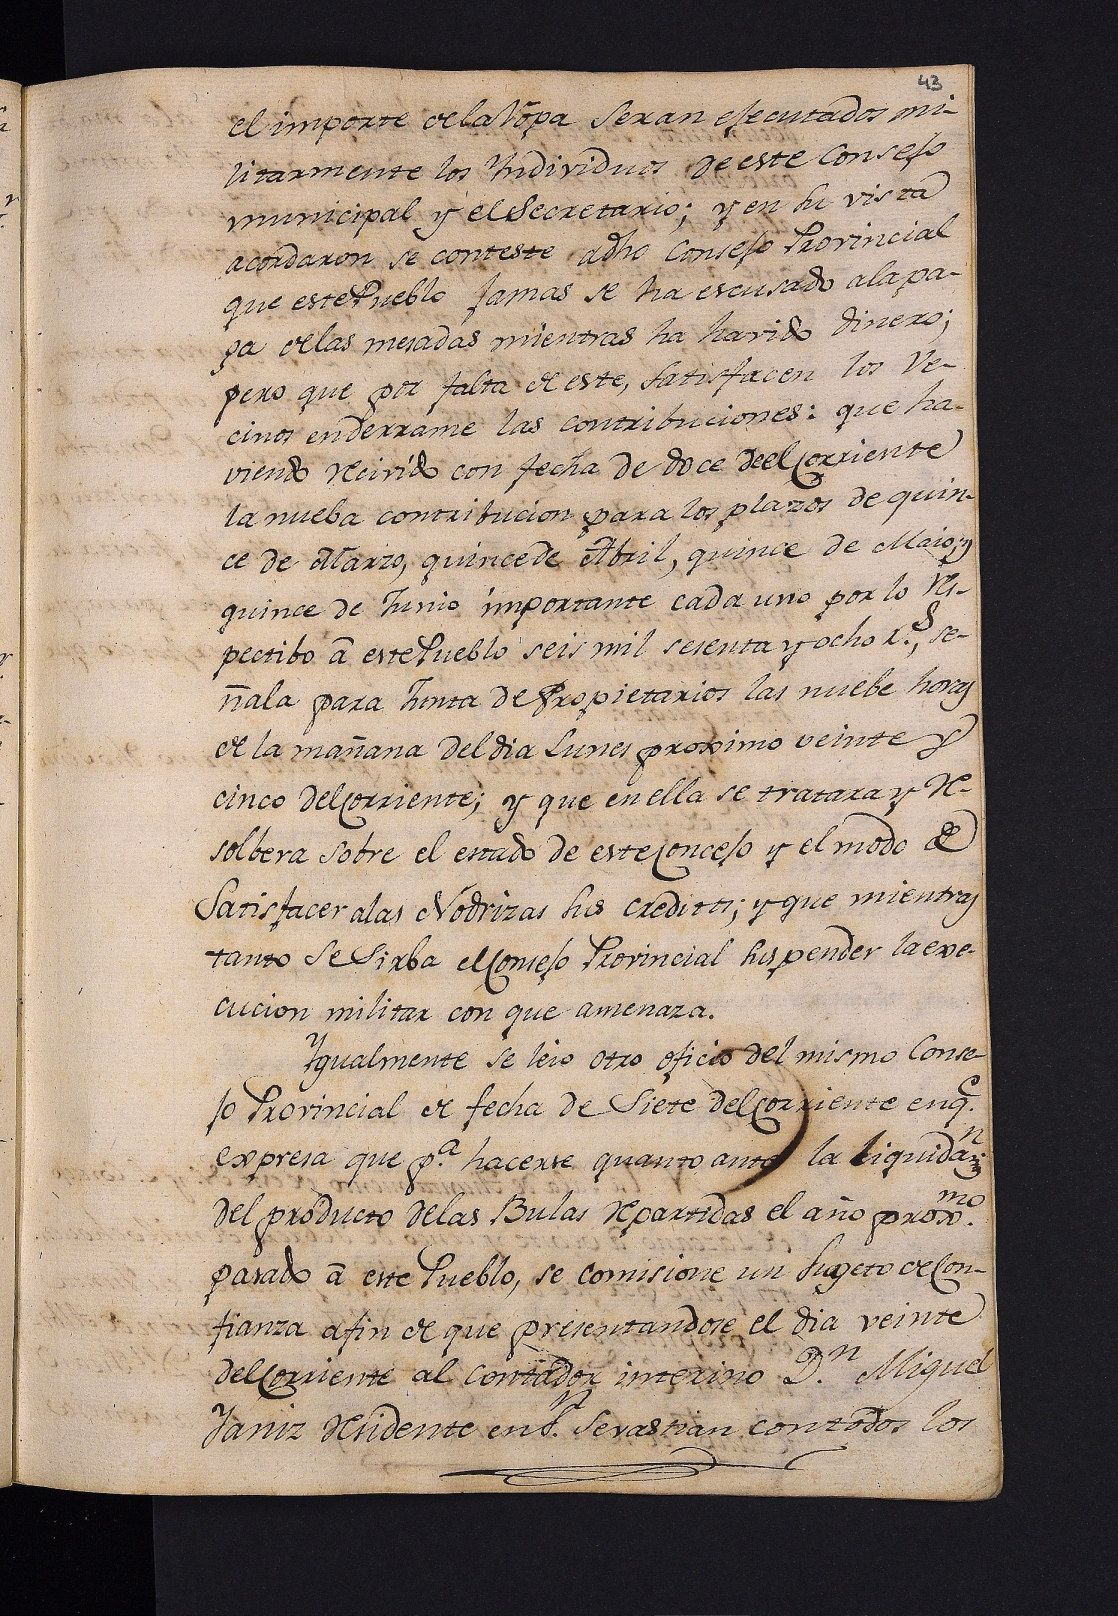 43
el importe de la Ropa seran ejecutados mi-
litarmente los Individuos de este Consejo
municipal y el Secretario; y en su vista
acordaron se conteste adho Consejo Provincial
que este Pueblo jamas se ha escusado ala pa-
ga de las mesadas mientras ha havido dinero;
pero que por falta de este, satisfacen los Ve-
cinos en derrame las contribuciones: que ha-
viendo recivido con fecha de doce deel Corriente
la nueba contribucion para los plazos de quin-
ce de Marzo, quince de Abril, quince de Maio, y
quince de Junio importante cada uno por lo res-
pectibo â este Pueblo seis mil sesenta y ocho r.s, se-
ñala para Junta de Propietarios las nuebe horas
de la mañana del dia Lunes proximo veinte y
cinco del Corriente; y que en ella se tratara y re-
solbera sobre el estado de este Concejo y el modo de
Satisfacer alas Nodrizas sus creditos; y que mientras
tanto se sirba el Consejo Provincial suspender la exe-
cucion militar con que amenaza.
Igualmente se leio otro oficio del mismo Conse-
jo Provincial de fecha de Siete del Corriente en q.e
expresa que p.a hacerse quanto antes la liquida.n
del producto de las Bulas repartidas el año prox.mo
pasado â este Pueblo, se comisione un sugeto de Con-
fianza afin de que presentandose el dia veinte
del Corriente al Contador interino D.n Miguel
Janiz residente en S.n Sevastian con todos los